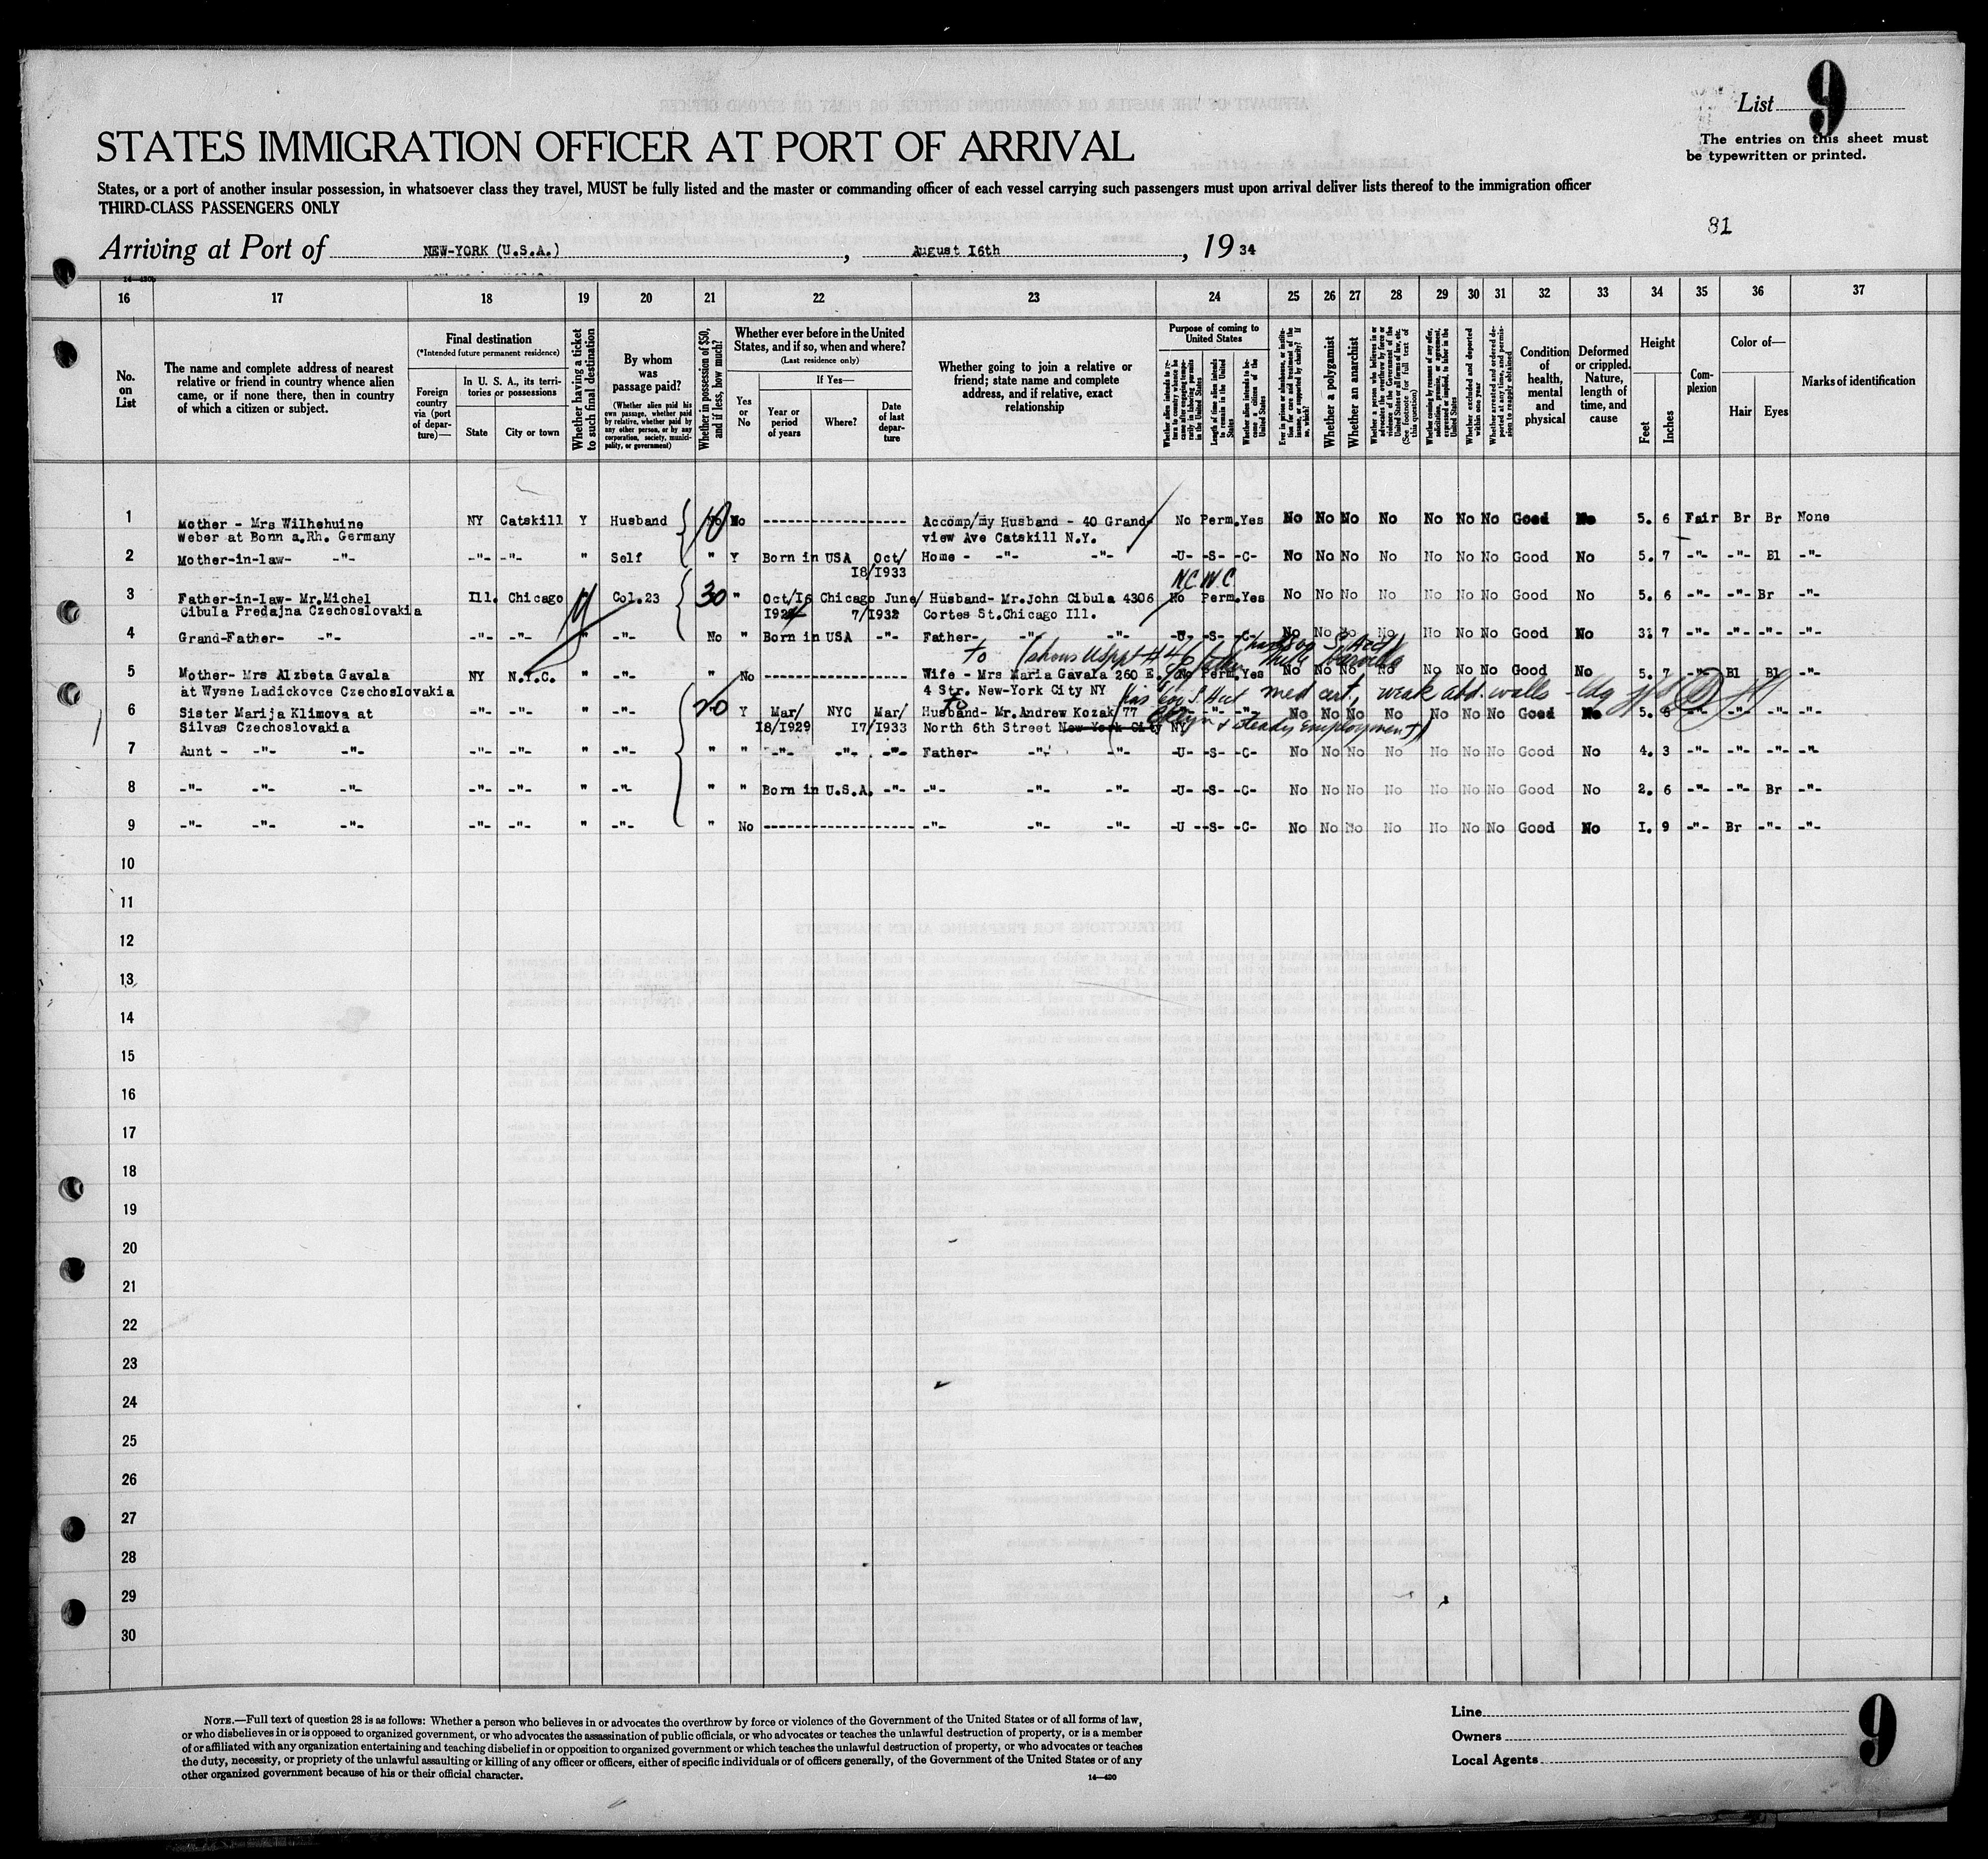 List 9
The entries on this sheet must
be typewritten or printed.
STATES IMMIGRATION OFFICER AT PORT OF ARRIVAL
States, or a port of another insular possession, in whatsoever class they travel, MUST be fully listed and the master or commanding officer of each vessel carrying such passengers must upon arrival deliver lists thereof to the immigration officer
THIRD-CLASS PASSENGERS ONLY
81
Arriving at Port of NEW-YORK (U.S.A.), August I6th, 19 34
16 17 18 19 20 21 22 23 24 25 26 27 28 29 30 31 32 33 34 35 36 37
No. on List
The name and complete address of nearest
relative or friend in country whence alien
came, or if none there, then in country
of which a citizen or subject.
Final destination
(*Intended future permanent residence)
Foreign country via (port of departure)—
In U. S. A., its territories or possessions
State
City or town
Whether having a ticket to such final destination
By whom was passage paid?
(Whether alien paid his own passage, whether paid by relative, whether paid by any other person, or by any corporation, society, municipality, or government)
Whether in possession of $50, and if less, how much?
Whether ever before in the United States, and if so, when and where?
(Last residence only)
Yes or No
If Yes—
Year or period of years
Where?
Date of last departure
Whether going to join a relative or
friend; state name and complete
address, and if relative, exact
relationship
Purpose of coming to United States
Whether alien intends to return to country whence he came after engaging temporarily in laboring pursuits in the United States
Length of time alien intends to remain in the United States
Whether alien intends to become a citizen of the United States
Ever in prison or almshouse, or institution for care and treatment of the insane, or supported by charity? If so, which?
Whether a polygamist
Whether an anarchist
Whether a person who believes in or advocates the overthrow by force or violence of the Government of the United States or all forms of law, etc. (See footnote for full text of this question)
Whether coming by reason of any offer, solicitation, promise, or agreement, expressed or implied, to labor in the United States
Whether excluded and deported within one year
Whether arrested and ordered deported at any time, and permission to reapply obtained
Condition of health, mental and physical
Deformed or crippled. Nature, length of time, and cause
Height
Feet
Inches
Complexion
Color of—
Hair
Eyes
Marks of identification
1 Mother - Mrs Wilhehuine NY Catskill Y Husband 10 No ----------------- Accomp/my Husband - 40 Grand- No Perm. Yes No No No No No No No Good No 5. 6 Fair Br Br None
Weber at Bonn a.Rh. Germany view Ave Catskill N.Y.
2 Mother-in-law- -"- -"- -"- " Self " Y Born in USA Oct/ Home - -"- -"- -U- -S- -C- No No No No No No No Good No 5. 7 -"- -"- Bl -"-
I8/I933
NC NC
3 Father-in-law- Mr.Michel Ill. Chicago " Col.23 30 " Oct/I6 Chicago June/ Husband- Mr.John Cibula 4306 No Perm. Yes No No No No No No No Good No 5. 6 -"- -"- Br -"-
Cibula Predajna Czechoslovakia 7/I932 Cortes St.Chicago Ill.
4 Grand-Father- -"- -"- -"- " -"- No " Born in USA -"- Father- -"- -"- -U- -S- -C- No No No No No No No Good No 3. 7 -"- -"- -"- -"-
to
5 Mother- Mrs Alzbeta Gavala NY N.Y.C. " -"- " No ----------------- Wife - Mrs Maria Gavala 260 E. No Perm. Yes No No No No No No No Good No 5. 7 -"- Bl Bl -"-
at Wysne Ladickovce Czechoslovakia 4 Str. New-York City NY
med cert, weak abd. walls
6 Sister Marija Klimova at -"- -"- " -"- 20 Y Mar/ NYC Mar/ Husband- Mr. Andrew Kozak 77 -"- -"- -"- No No No No No No No Good No 5. 6 -"- -"- -"- -"-
Silvas Czechoslovakia I8/I929 I7/I933 North 6th Street New-York City NY
& steady employment)
7 Aunt - -"- -"- -"- -"- " -"- " " -"- -"- -"- Father- -"- -"- -U- -S- -C- No No No No No No No Good No 4. 3 -"- -"- -"- -"-
8 -"- -"- -"- -"- -"- " -"- " " Born in U.S.A. -"- -"- -"- -"- -U- -S- -C- No No No No No No No Good No 2. 6 -"- -"- Br -"-
9 -"- -"- -"- -"- -"- " -"- " No ----------------- -"- -"- -"- -U -S- -C- No No No No No No No Good No I. 9 -"- Br -"- -"-
10
11
12
13
14
15
16
17
18
19
20
21
22
23
24
25
26
27
28
29
30
NOTE.—Full text of question 28 is as follows: Whether a person who believes in or advocates the overthrow by force or violence of the Government of the United States or of all forms of law,
or who disbelieves in or is opposed to organized government, or who advocates the assassination of public officials, or who advocates or teaches the unlawful destruction of property, or is a member
of or affiliated with any organization entertaining and teaching disbelief in or opposition to organized government or which teaches the unlawful destruction of property, or who advocates or teaches
the duty, necessity, or propriety of the unlawful assaulting or killing of any officer or officers, either of specific individuals or of officers generally, of the Government of the United States or of any
other organized government because of his or their official character.
14—430
Line
Owners
Local Agents
9